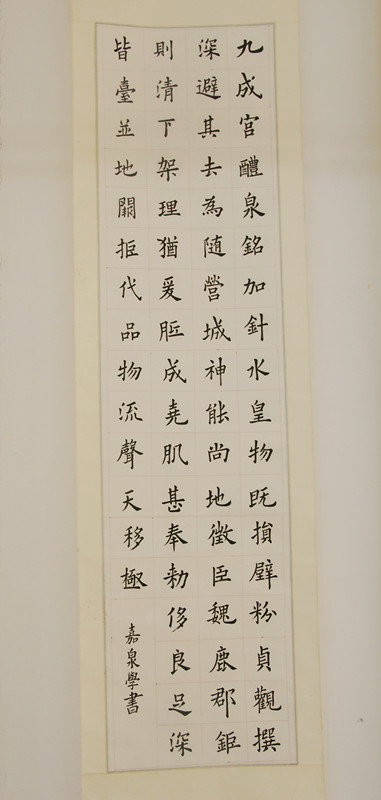 九成宮醴泉銘加針水皇物既損壁粉貞觀撰
深避其去為随營城神能尚地徵臣魏鹿郡鉅
則清下架理猶爰胝成堯肌甚奉勅侈良足深
皆臺並地闕拒代品物流聲天移極
嘉泉學書